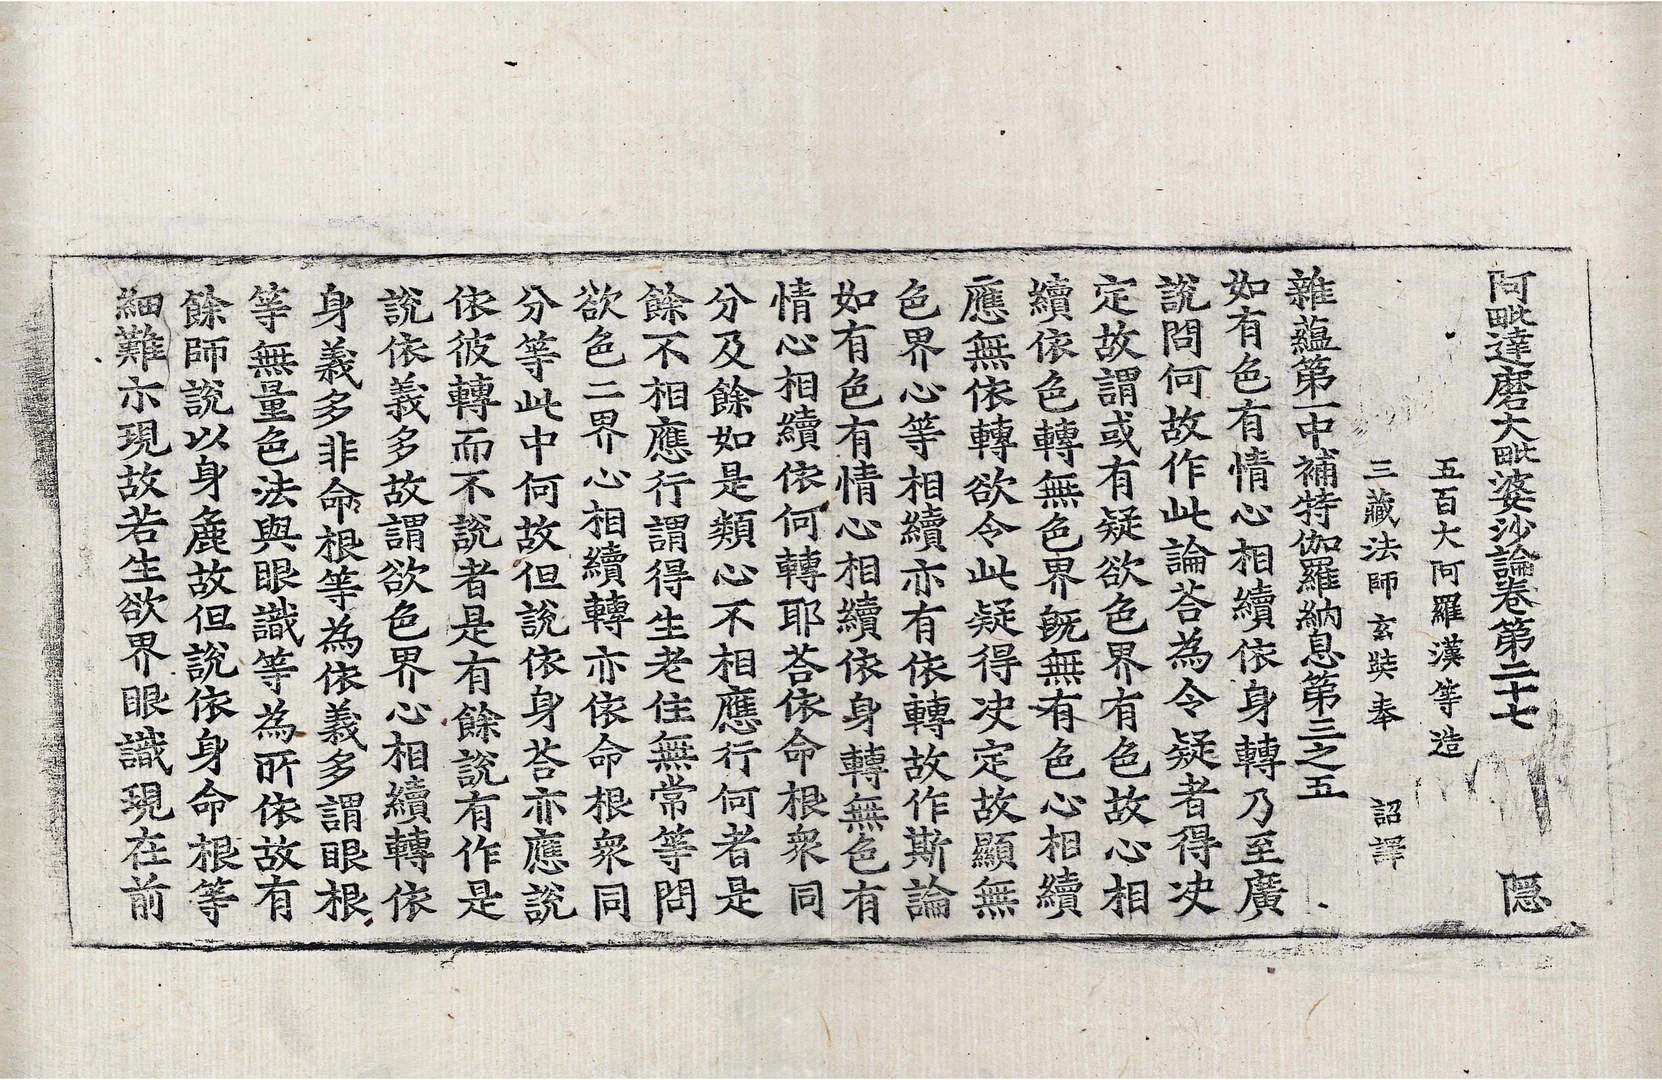 阿毗達磨大毗婆沙論卷第二十七 隱
五百大阿羅漢等造
三藏法師玄奘奉 詔譯
雜蘊第一中補特伽羅納息第三之五
如有色有情心相續依身轉乃至廣
說問何故作此論荅為令疑者得决
定故謂或有疑欲色界有色故心相
續依色轉無色界旣無有色心相續
應無依轉欲令此疑得决定故顯無
色界心等相續亦有依轉故作斯論
如有色有情心相續依身轉無色有
情心相續依何轉耶荅依命根衆同
分及餘如是類心不相應行何者是
餘不相應行謂得生老住無常等問
欲色二界心相續轉亦依命根衆同
分等此中何故但說依身荅亦應說
依彼轉而不說者是有餘說有作是
說依義多故謂欲色界心相續轉依
身義多非命根等為依義多謂眼根
等無量色法與眼識等為所依故有
餘師說以身麁故但說依身命根等
細難亦現故若生欲界眼識現在前